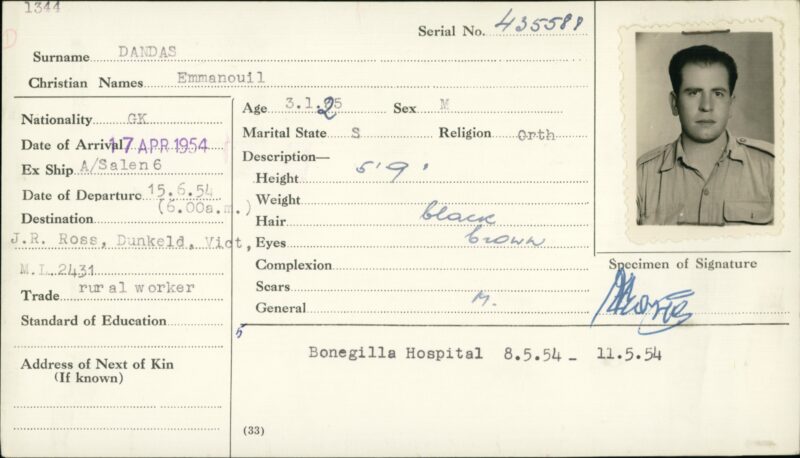 1344
Serial No. 435588
Surname DANDAS
Christian Names Emmanouil
Nationality GK
Date of Arrival 17 APR 1954
Ex Ship A/Salen 6
Date of Departure 15.6.54
(6.00a.m.)
Destination
J.R. Ross, Dunkeld, Vict,
M.L.2431
Trade rural worker
Standard of Education
Address of Next of Kin
(If known)
Age 3.1.25 Sex M
Marital State S Religion Orth
Description—
Height 5'9'
Weight
Hair black
Eyes brown
Complexion
Scars
General M.
Specimen of Signature
5
Bonegilla Hospital 8.5.54 - 11.5.54
(33)